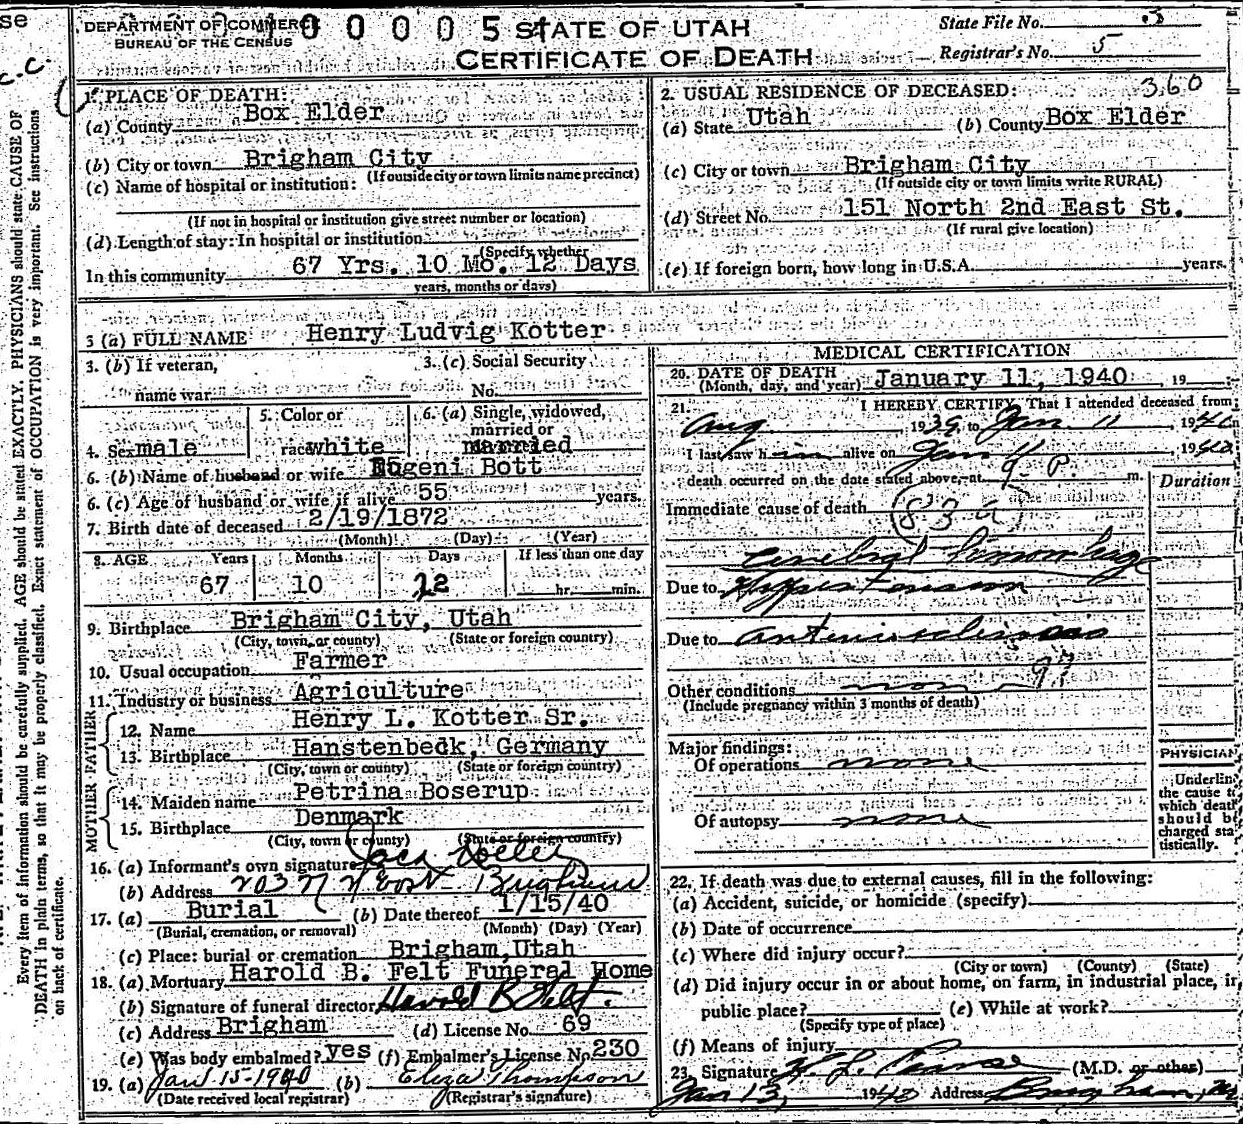 se
c.c.
DEPARTMENT OF COMMERCE
BUREAU OF THE CENSUS
0 0 0 0 5
STATE OF UTAH
CERTIFICATE OF DEATH
State File No. 5
Registrar's No. 5
360
1. PLACE OF DEATH:
(a) County Box Elder
(b) City or town Brigham City
(If outside city or town limits name precinct)
(c) Name of hospital or institution:
(If not in hospital or institution give street number or location)
(d) Length of stay: In hospital or institution
(Specify whether
In this community 67 Yrs. 10 Mo. 12 Days
years, months or days)
2. USUAL RESIDENCE OF DECEASED:
(a) State Utah (b) County Box Elder
(c) City or town Brigham City
(If outside city or town limits write RURAL)
(d) Street No. 151 North 2nd East St.
(If rural give location)
(e) If foreign born, how long in U.S.A. years.
3 (a) FULL NAME Henry Ludvig Kotter
3. (b) If veteran,
name war
3. (c) Social Security
No.
4. Sex male
5. Color or
race white
6. (a) Single, widowed,
married or
married
6. (b) Name of husband or wife Eugeni Bott
6. (c) Age of husband or wife if alive 55 years.
7. Birth date of deceased 2/19/1872
(Month) (Day) (Year)
8. AGE Years Months Days If less than one day
67 10 22 hr. min.
9. Birthplace Brigham City, Utah
(City, town, or county) (State or foreign country)
10. Usual occupation Farmer
11. Industry or business Agriculture
FATHER
12. Name Henry L. Kotter Sr.
13. Birthplace Hanstenbeck, Germany
(City, town or county) (State or foreign country)
MOTHER
14. Maiden name Petrina Boserup
15. Birthplace Denmark
(City, town or county) (State or foreign country)
16. (a) Informant's own signature
(b) Address 203 N East Brigham
17. (a) Burial (b) Date thereof 1/15/40
(Burial, cremation, or removal) (Month) (Day) (Year)
(c) Place: burial or cremation Brigham, Utah
18. (a) Mortuary Harold B. Felt Funeral Home
(b) Signature of funeral director Harold B Felt.
(c) Address Brigham (d) License No. 69
(e) Was body embalmed? yes (f) Embalmer's License No. 230
19. (a) Jan 15-1940 (b) Eliza Thompson
(Date received local registrar) (Registrar's signature)
MEDICAL CERTIFICATION
20. DATE OF DEATH
(Month, day, and year) January 11, 1940, 19
21. I HEREBY CERTIFY, That I attended deceased from
Aug 1939, to Jan 11, 1940
I last saw him alive on Jan 11, 1940
death occurred on the date stated above, at 9 P. m.
Duration
Immediate cause of death 83a
Cerebral hemorrhage
Due to Hypertension
Due to arteriosclerosis
Other conditions none
(Include pregnancy within 3 months of death)
Major findings:
Of operations none
Of autopsy none
PHYSICIAN
Underline
the cause to
which death
should be
charged sta-
tistically.
22. If death was due to external causes, fill in the following:
(a) Accident, suicide, or homicide (specify)
(b) Date of occurrence
(c) Where did injury occur?
(City or town) (County) (State)
(d) Did injury occur in or about home, on farm, in industrial place, in
public place? (e) While at work?
(Specify type of place)
(f) Means of injury
23. Signature (M.D. or other)
Jan 13, 1940 Address Brigham,
Every item of information should be carefully supplied. AGE should be stated EXACTLY. PHYSICIANS should state CAUSE OF
DEATH in plain terms, so that it may be properly classified. Exact statement of OCCUPATION is very important. See instructions
on back of certificate.